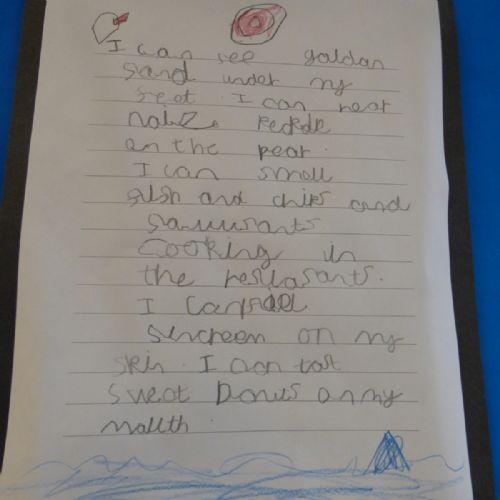 I can see goldan
sand under my
feet. I can hear
people
on the pear.
I can smell
fish and chips and
cooking in
the restasants.
I can feel
suncreem on my
skin. I can tast
sweet Donuts on my